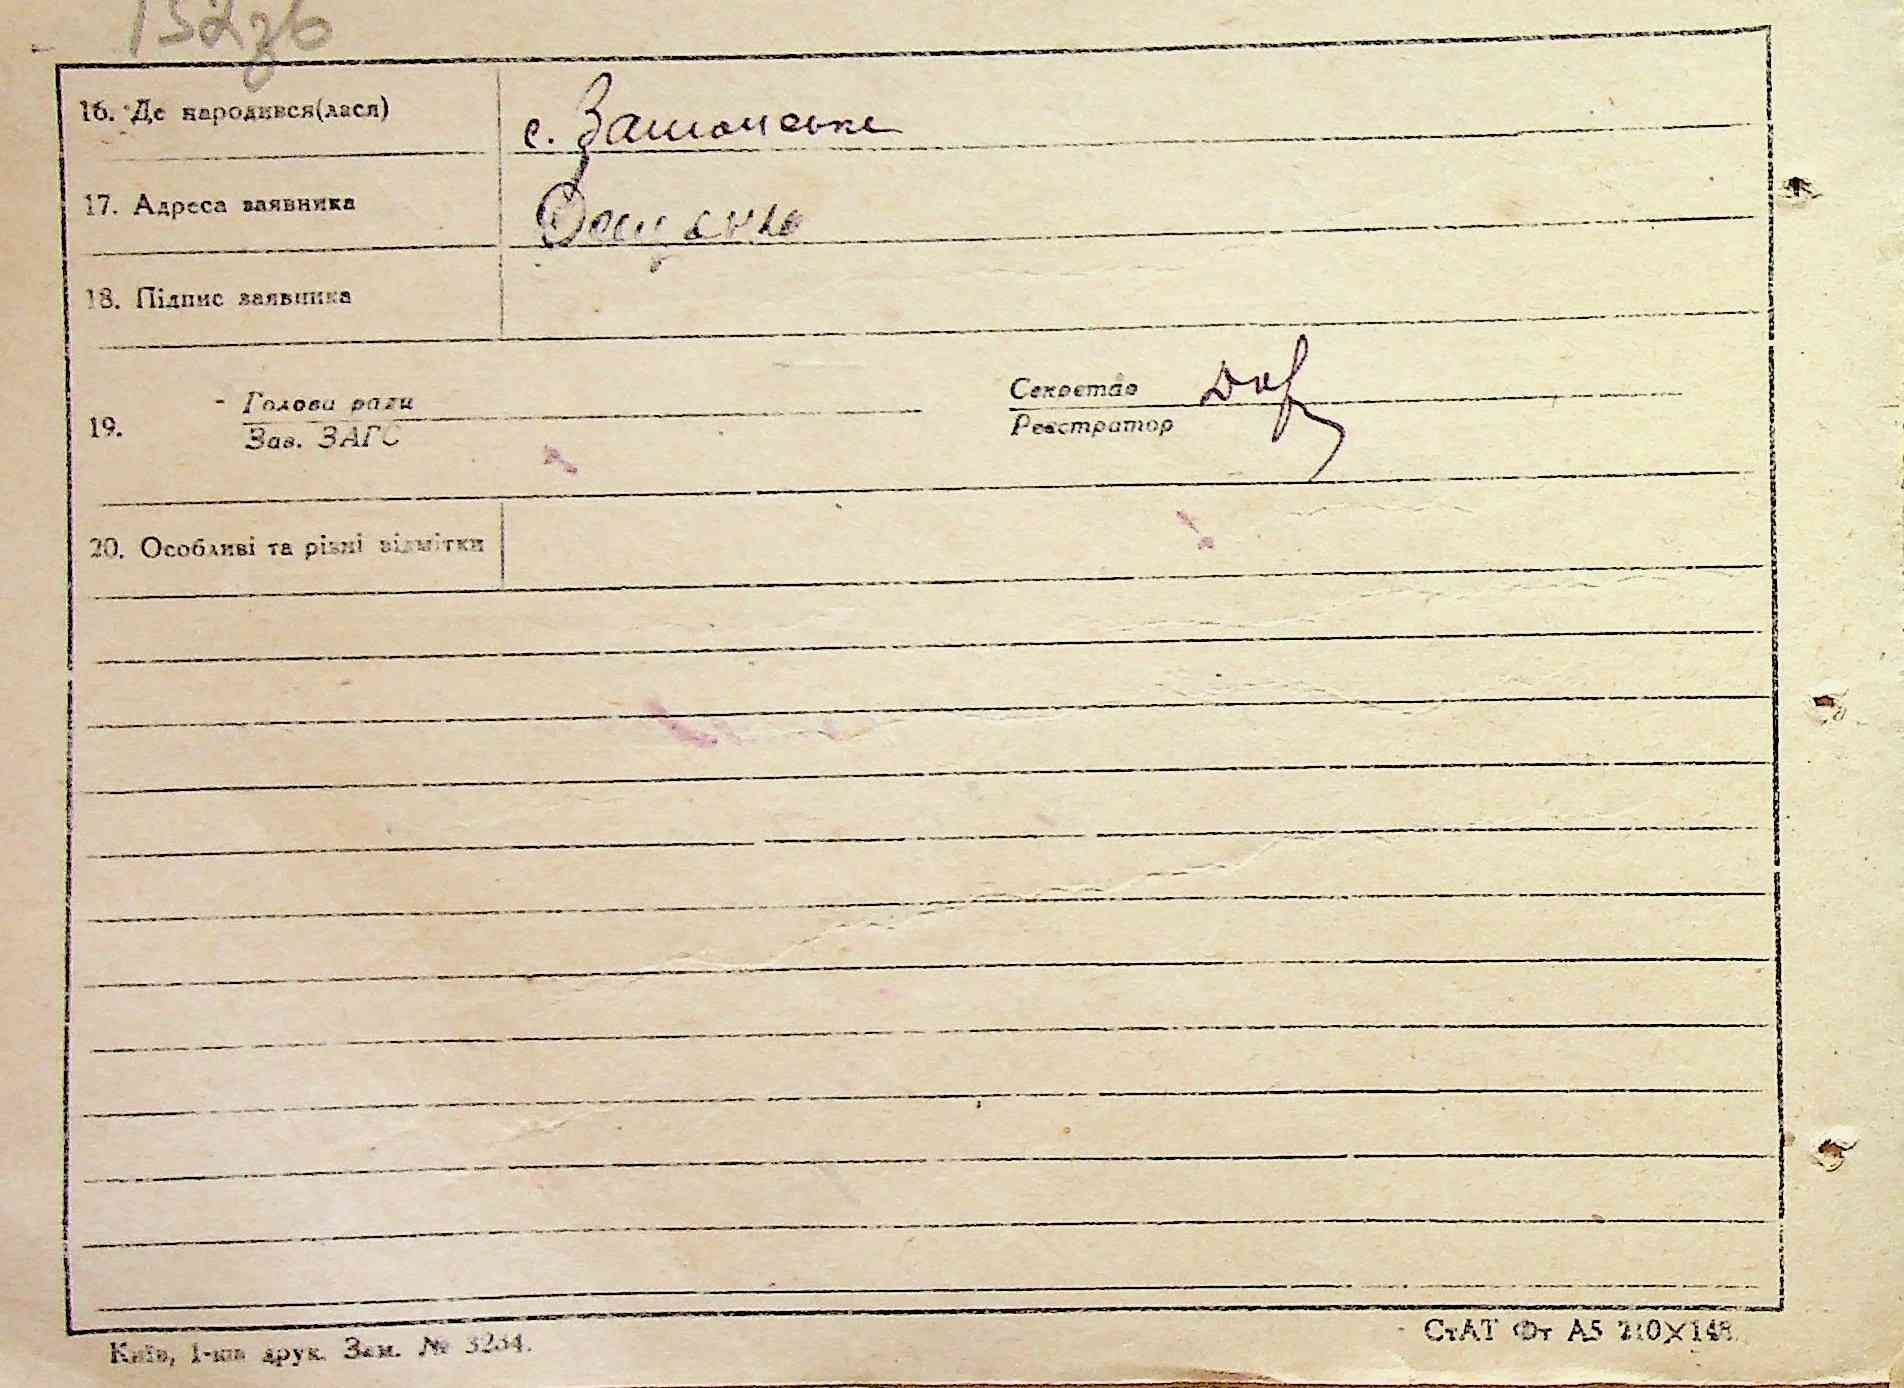 152зв
16. Де народився(лася)
с.
17. Адреса заявника
18. Підпис заявника
19. Голова ради
Зав. ЗАГС
Секретар
Реєстратор
20. Особливі та різні відмітки
Київ, 1-ша друк. Зам. № 3234.
СтАТ Фт А5 210×148.